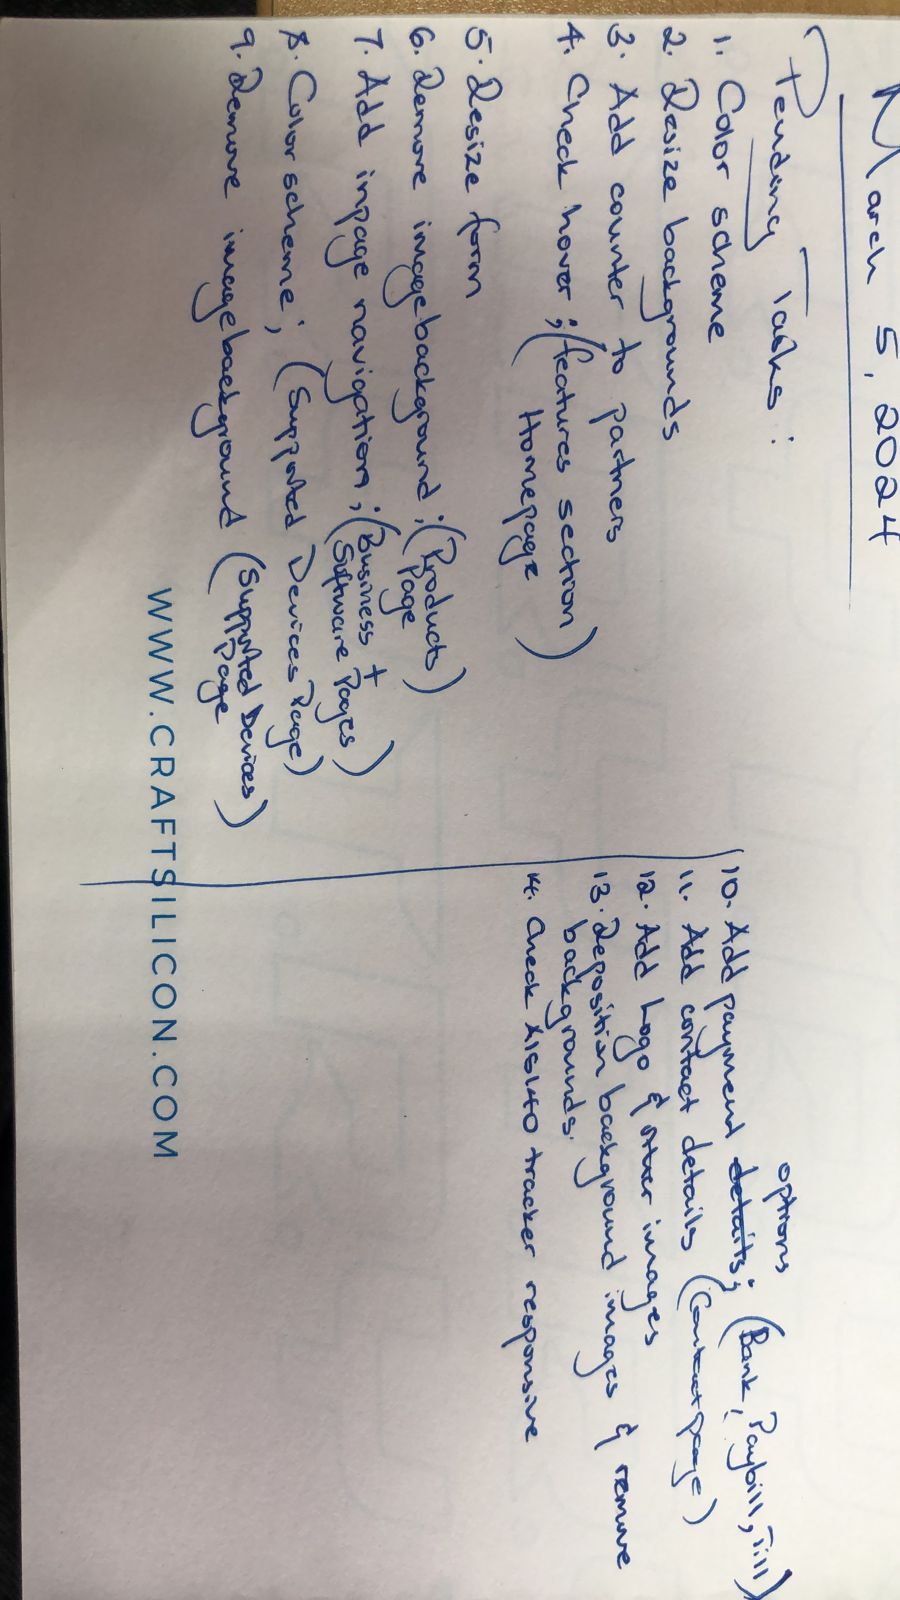 March 5, 2024
Pending Tasks:
1. Color scheme
2. Resize backgrounds
3. Add counter to partners
4. Check hover; (features section
Homepage)
5. Resize form
6. Remove image background; (Products
Page)
7. Add inpage navigation; (Business +
Software Pages)
8. Color scheme; (Supported Devices Page)
9. Remove image background (Supported Devices
Page)
options
10. Add payment details; (Bank, Paybill, Till)
11. Add contact details (Contact page)
12. Add Logo & other images
13. Reposition background images & remove
backgrounds.
14. Check tracker responsive
WWW.CRAFTSILICON.COM